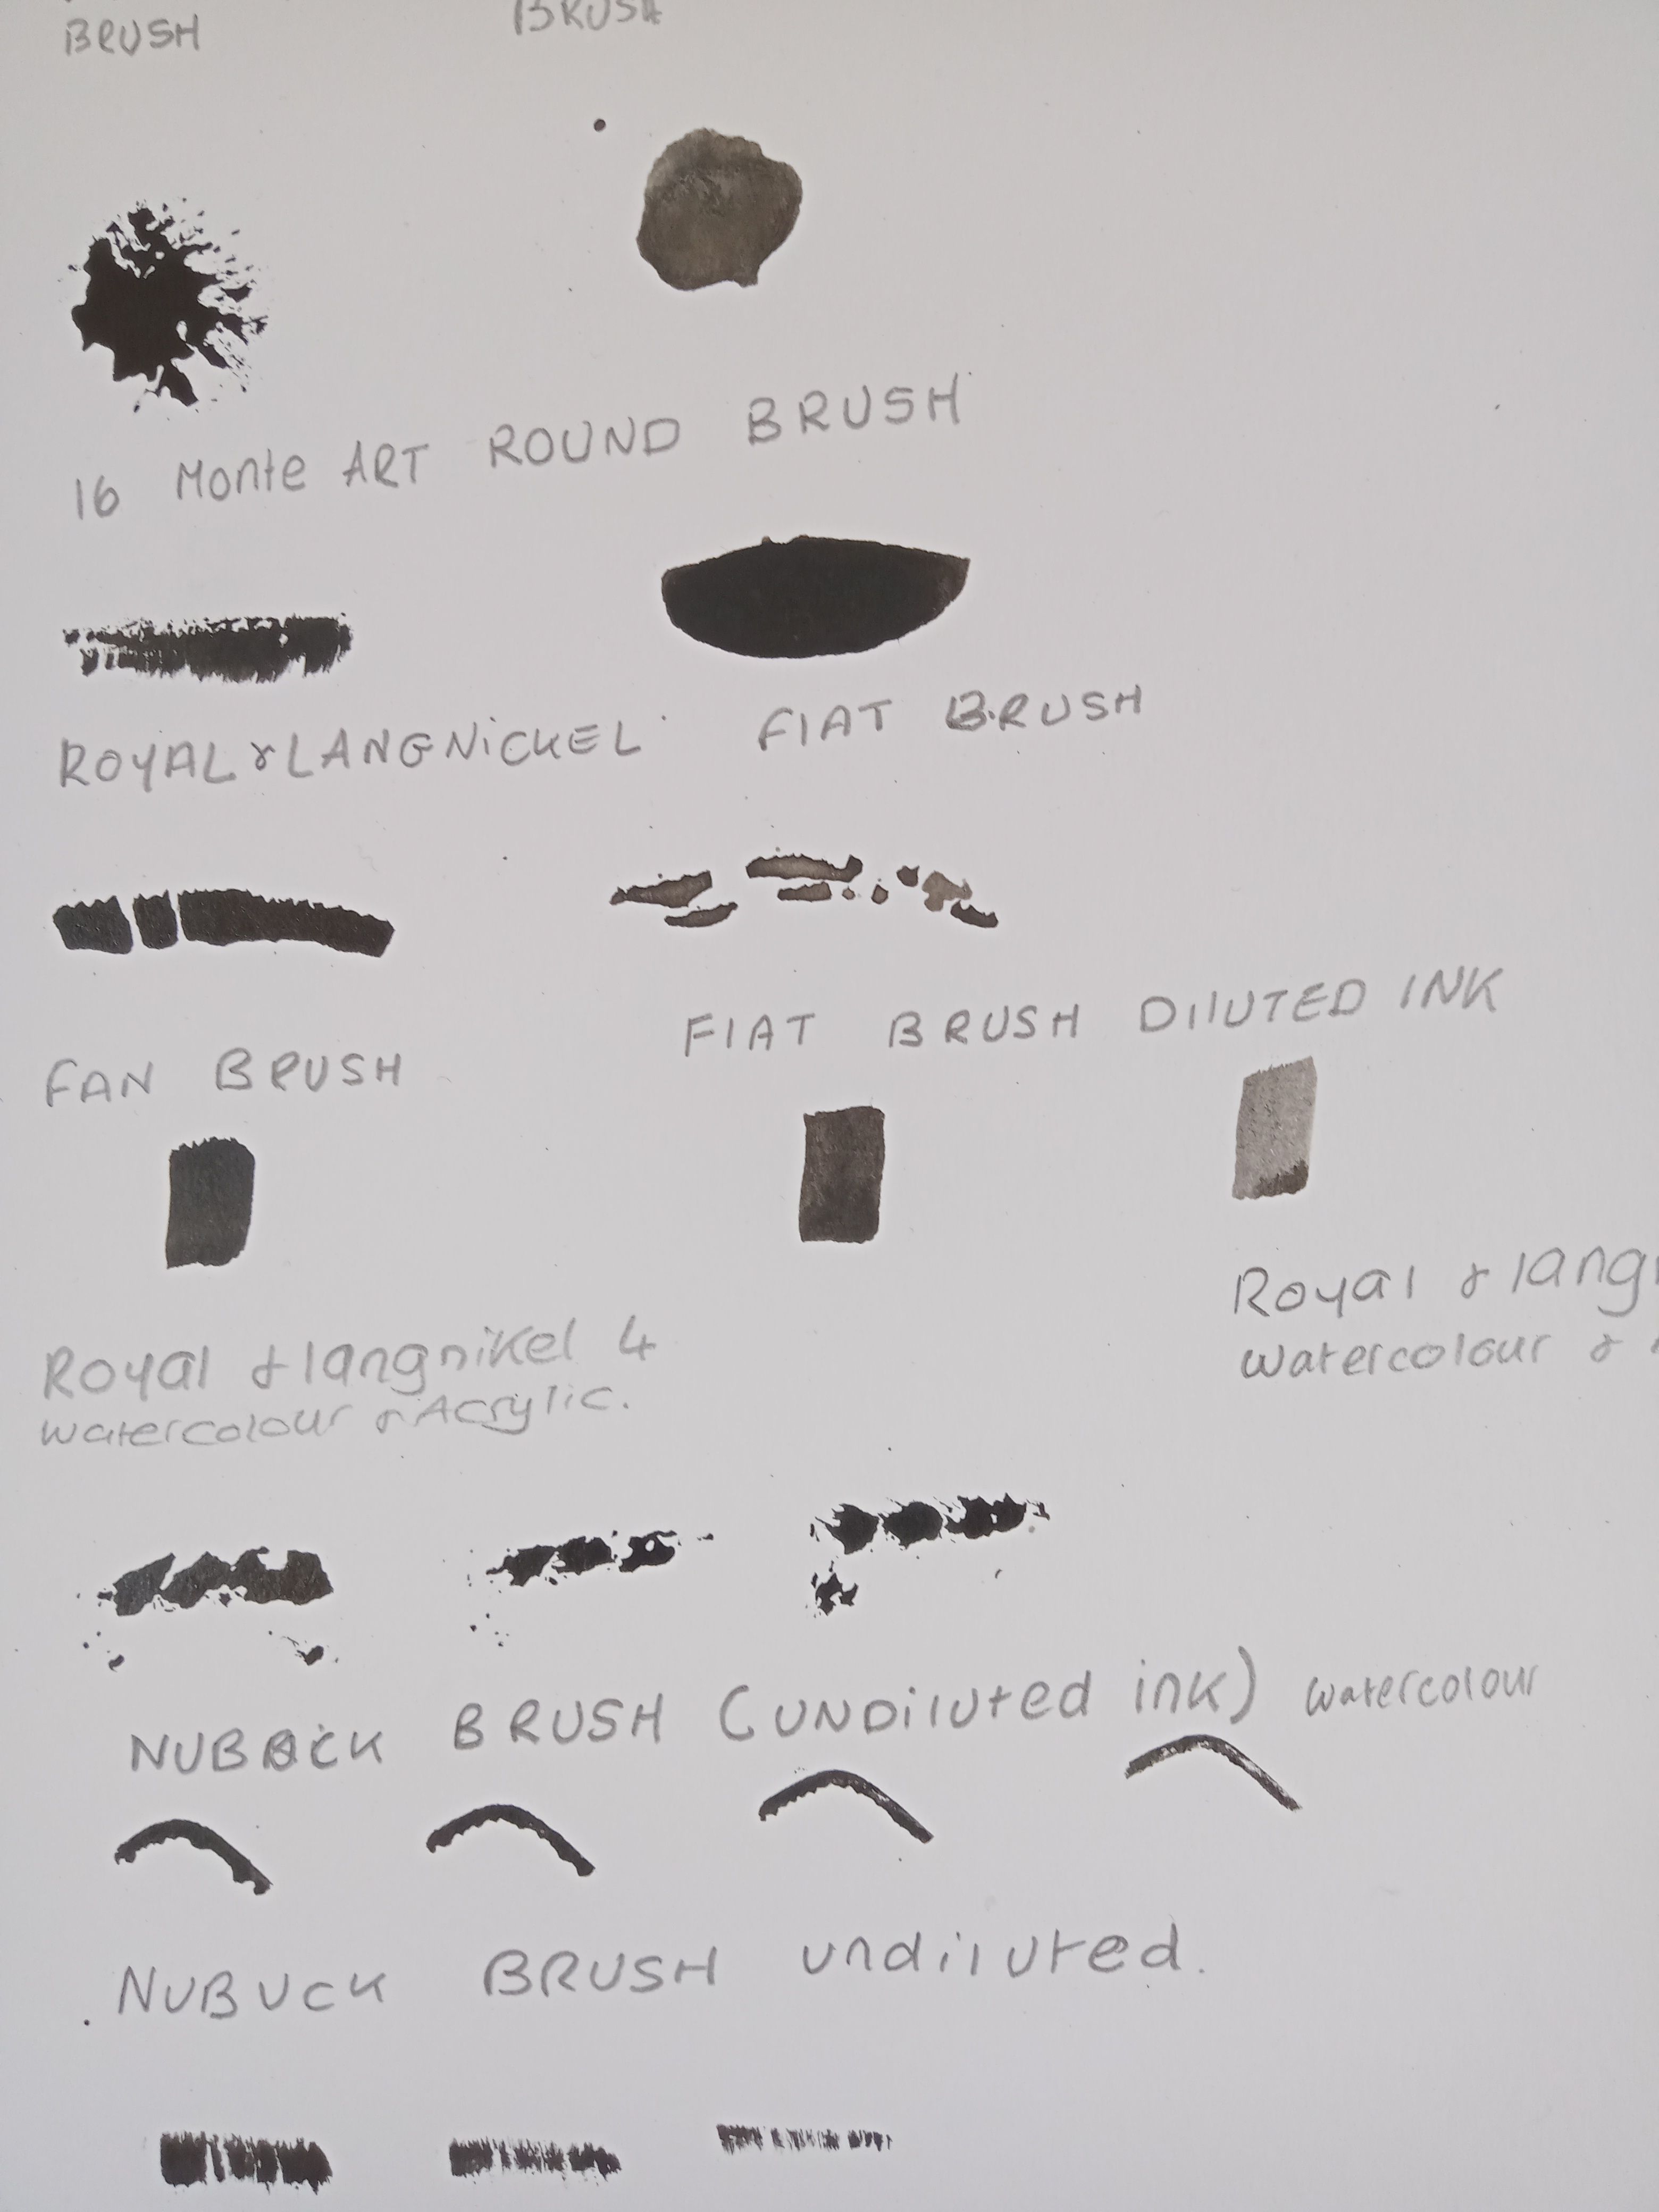 BRUSH
BRUSH
16 Monte ART ROUND BRUSH
ROYAL & LANGNiCKEL FlAT BRUSH
FAN BRUSH
FlAT BRUSH DilUTED INK
Royal & langnikel 4
watercolour & Acrylic.
Royal & lang
watercolour &
BRUSH (UNDiluted ink) watercolour
NUBUCK BRUSH undiluted.